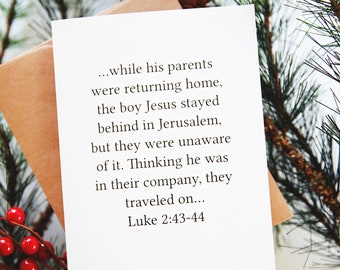 ...while his parents
were returning home,
the boy Jesus stayed
behind in Jerusalem,
but they were unaware
of it. Thinking he was
in their company, they
traveled on...
Luke 2:43-44